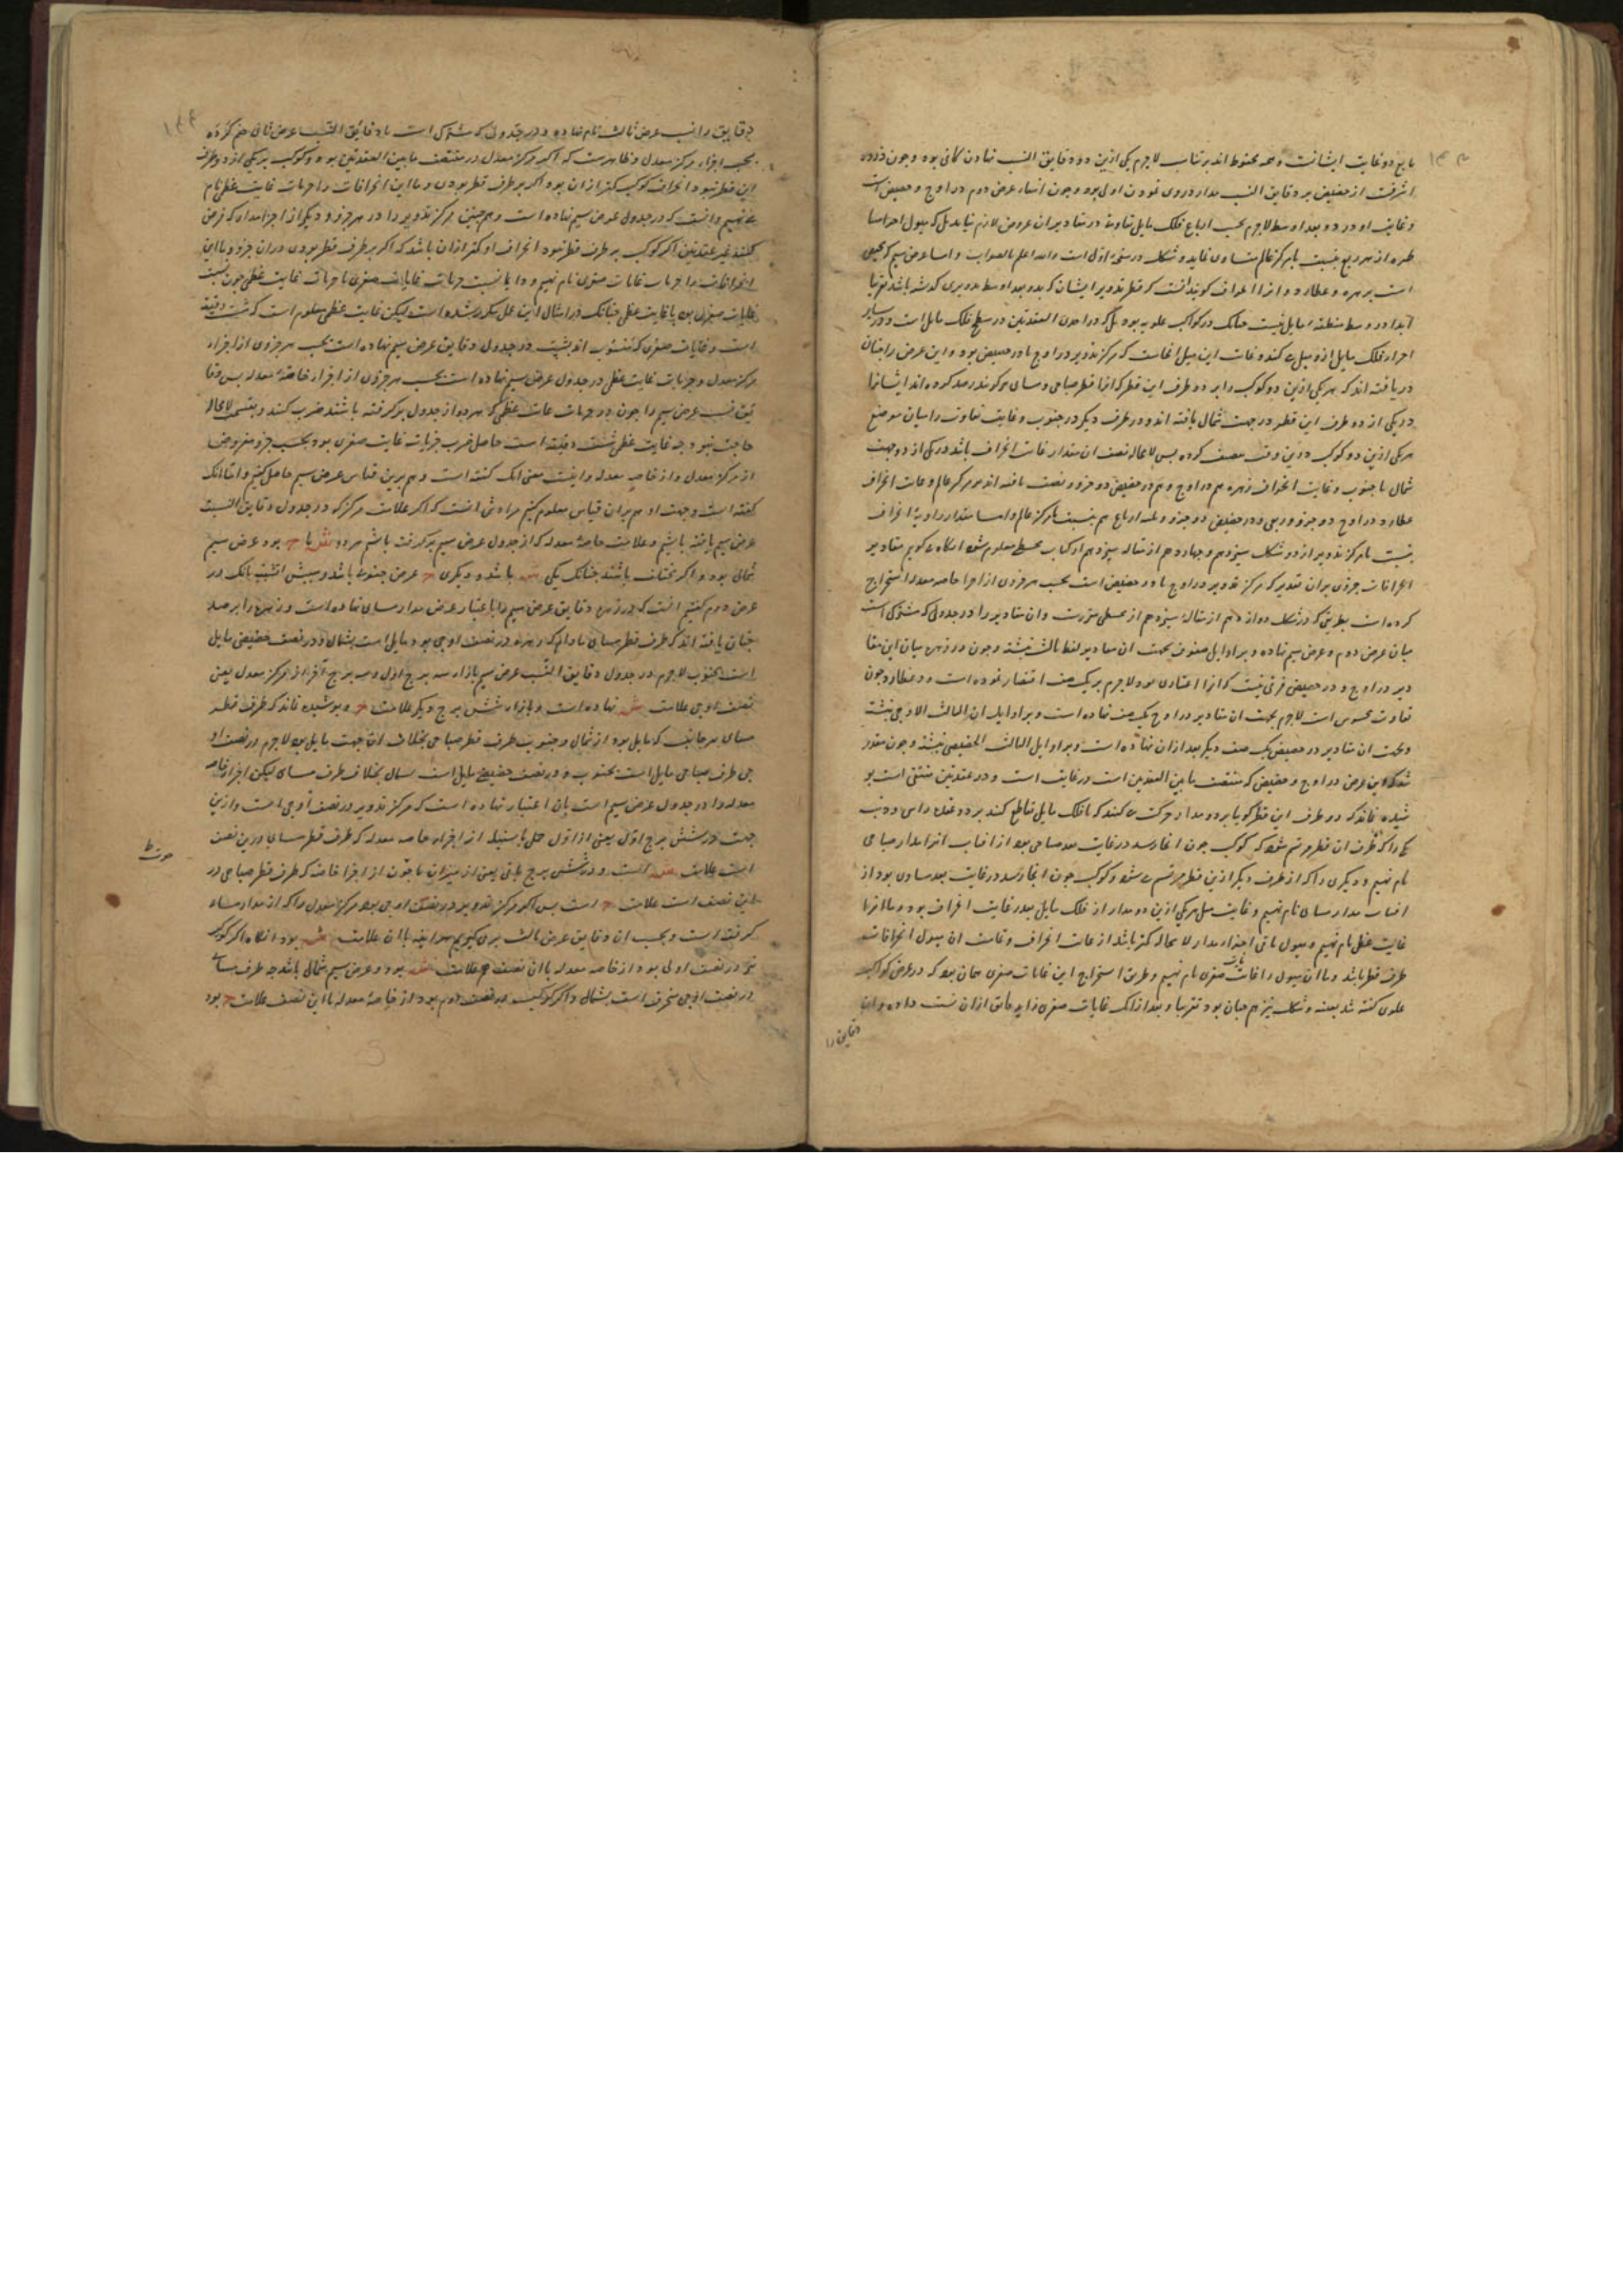 مابع دو غایت ایشانست و همه محفوط اند بر تناسب لاجرم یکی ازین دو دقایق النسب نهادن کافی بود و چون ذروه
اشرفت از حضیض بر دقایق النسب مدار ذروی نمودن اولی بود و چون انتهاء عرض دوم در اوج و حضیض است
و غایت او در دو بعد اوسط لاجرم بحسب ارباع فلک مایل تفاوت در مقادیر ان عروض لازم نیاید بلک میول اجزا
هر ربع نسبت با مرکز عالم متساوی نماید و شکل درستی اولی است والله اعلم بالصواب و اما عرض سیم که
است بر زهره و عطارد و انرا انحراف کویند آنست که قطر تدویر ایشان که بدو بعد اوسط تدویری کذشته باشد تقریبا
ابدا در وسط منطقه مایل نیست چنانک در کواکب علویه بود بلک در احدی العقدتین در سطح فلک مایل است و در سایر
اجزاء فلک مایل ازو میل کند و غایت این میل انجاست که مرکز تدویر در اوج یا در حضیض بود و این عرض را چنان
دریافته اند که هر یکی ازین دو کوکب را بر دو طرف این قطر که انرا قطر صباحی و مسای میکویند رصد کرده اند ایشانرا
در یکی از دو طرف این قطر در جهت شمال یافته اند و در طرف دیکر در جنوب و غایت تفاوت را میان موضع
هر یکی ازین دو کوکب درین وقت نصف کرده پس لامحاله نصف ان مقدار غایت انحراف باشد در یکی از دو جهت
شمال یا جنوب و غایت انحراف زهره هم در اوج و هم در حضیض دو جزو و نصف یافته اند بر مرکز عالم و غایت انحراف
عطارد در اوج دو جزو و ربعی و در حضیض دو جزو و ثلثه ارباع هم نسبت با مرکز عالم و اما مقدار زاویه انحراف
نسبت با مرکز تدویر از دو شکل سیزدهم و چهاردهم از مقاله سیزدهم از کتاب مجسطی معلوم شود انکاه کوییم مقادیر
انحرافات جزوی بران تقدیر که مرکز تدویر در اوج یا در حضیض است بحسب هر جزوی از اجزا خاصه معدله استخراج
کرده است بطریقی که در شکل دوازدهم از مقالهٔ سیزدهم از مجسطی مقررست و ان مقادیر را در جدولی که مشترک است
میان عرض دوم و عرض سیم نهاده و بر اوایل صفوف بجهت ان مقادیر لفظ ثالث نبشته و چون در زهره میان این مقا
دیر در اوج و در حضیض فرقی نیست که انرا اعتباری بود لاجرم بر یک صف اقتصار نموده است و در عطارد چون
تفاوت محسوس است لاجرم بجهت ان مقادیر در اوج یک صف نهاده است و بر اوایل ان الثالث الاوجی نبشته
و بجهت ان مقادیر در حضیض یک صف دیکر بعد ازان نهاده است و بر اوایل الثالث الحضیضی نبشته و چون مقرر
شد که این عرض در اوج و حضیض که منتصف ما بین العقدتین است در غایت است و در عقدتین منتفی است پو
شیده نماند که دو طرف این قطر کویا بر دو مدار حرکت کنند که با فلک مایل تقاطع کنند بر دو عقده راس و ذنب
یکی را که از طرف ان قطر مرتسم شود که کوکب چون انجا رسد در غایت بعد صباحی بود از افتاب انرا مدار صباحی
نام نهیم و دیکری را که از طرف دیکر ازین قطر مرتسم شود و کوکب چون انجا رسد در غایت بعد مساوی بود از
افتاب مدار مسای نام نهیم و غایت میل هر یکی ازین دو مدار از فلک مایل بقدر غایت انحراف بود و ما انرا
غایت عظمی نام نهیم و میول باقی اجزاء مدار لامحاله کمتر باشد از غایت انحراف و غایت ان میول انحرافات
طرف قطر باشد و ما ان میول را غایات صغری نام نهیم و طریق استخراج این غایات صغری همان بود که در عرض کواکب
علوی کفته شد بعینه و شکل نیز هم چنان بود تقریبا و بعد ازانک غایات صغری را بدقایق ازان نسبت داده و ان
دقایق را
۱۴۳
دقایق را نسب عرض ثالث نام نهاده و در جدولی که مشترک است با دقایق النسب عرض ثانی ضم کرده
بحسب اجزاء مرکز معدل و ظاهرست که اکر مرکز معدل در منتصف ما بین العقدتین بود و کوکب بر یکی از دو طرف
این قطر نبود انحراف کوکب کمتر ازان بود اکر بر طرف قطر بودی و ما این انحرافات را جزیات غایت عظمی نام
نهیم و انست که در جدول عرض سیم نهاده است و هم چنین مرکز تدویر را در هر جزو دیکر از اجزا مدار که فرض
کنند غیر عقدتین اکر کوکب بر طرف قطر نبود انحراف او کمتر ازان باشد که اکر بر طرف قطر بودی دران جزو و ما این
انحرافات را جزیات غایات صغری نام نهیم و دایما نسبت جزیات غایات صغری با جزیات غایت عظمی چون نسبت
غایات صغری بود با غایت عظمی چنانک در امثال این عمل مکرر شده است لیکن غایت عظمی معلوم است که شصت دقیقه
است و غایات صغری که منسوب اند بشصت در جدول دقایق عرض سیم نهاده است بحسب هر جزوی از اجزاء
مرکز معدل و جزیات غایت عظمی در جدول عرض سیم نهاده است بحسب هر جزوی از اجزاء خاصهٔ معدله پس دقا
یق نسب عرض سیم را چون در جزیات غایت عظمی که هر دو از جدول بر کرفته باشند ضرب کنند و بقسمت لامحاله
حاجت نبود چه غایت عظمی شصت دقیقه است حاصل ضرب جزیات غایت صغری بود بحسب جزو مفروض
از مرکز معدل و از خاصه معدله و اینست معنی انک کفته است و هم برین قیاس عرض سیم حاصل کنیم و اما انک
کفته است و جهت او هم بران قیاس معلوم کنیم مرادش انست که اکر علامت مرکز که در جدول دقایق النسب
عرض سیم یافته باشیم و علامت خاصهٔ معدله که از جدول عرض سیم بر کرفته باشیم هر دو ش یا ج بود عرض سیم
شمالی بود و اکر مختلف باشند چنانک یکی ش باشد و دیکری ج عرض جنوبی باشد و سببش انست بانک در
عرض دوم کفتیم انست که در زهره دقایق عرض سیم را باعتبار عرض مدار مسای نهاده است و زهره را برصد
چنان یافته اند که طرف قطر مسای مادام که زهره در نصف اوجی بود مایل است بشمال و در نصف حضیضی مایل
است بجنوب لاجرم در جدول دقایق النسب عرض سیم بازاء سه برج اول و سه برج آخر از مرکز معدل یعنی
نصف اوجی علامت ش نهاده است و بازاء شش برج دیکر علامت ج و پوشیده نماند که طرف قطر
مسای هر جانب که مایل بود از شمال و جنوب طرف قطر صباحی بخلاف ان جهت مایل بود لاجرم در نصف او
جی طرف صباحی مایل است بجنوب و در نصف حضیضی مایل است بشمال بخلاف طرف مسای لیکن اجزاء خاصه
معدله را در جدول عرض سیم است بان اعتبار نهاده است که مرکز تدویر در نصف اوجی است و ازین
جهت در شش برج اول یعنی از اول حمل تا سنبله از اجزاء خاصه معدله که طرف قطر مسای درین نصف
است علامت ش است و در شش برج باقی یعنی از میزان تا حوت از اجزا خاصه که طرف قطر صباحی در
این نصف است علامت ج است پس اکر مرکز تدویر در نصف اوجی بود مرکز معدل را که از مدار مسا
کرفته است و بحسب ان دقایق عرض ثالث بری کیریم هراینه باان علامت ش بود انکاه اکر کوکب
در نصف اولی بود از خاصه معدله باان نصف هم علامت ش بود و عرض سیم شمالی باشد چه طرف مسای
در نصف اوجی منحرف است بشمال و اکر کوکب در نصف دوم بود از خاصهٔ معدله باین نصف علامت ج بود
۱۴۴